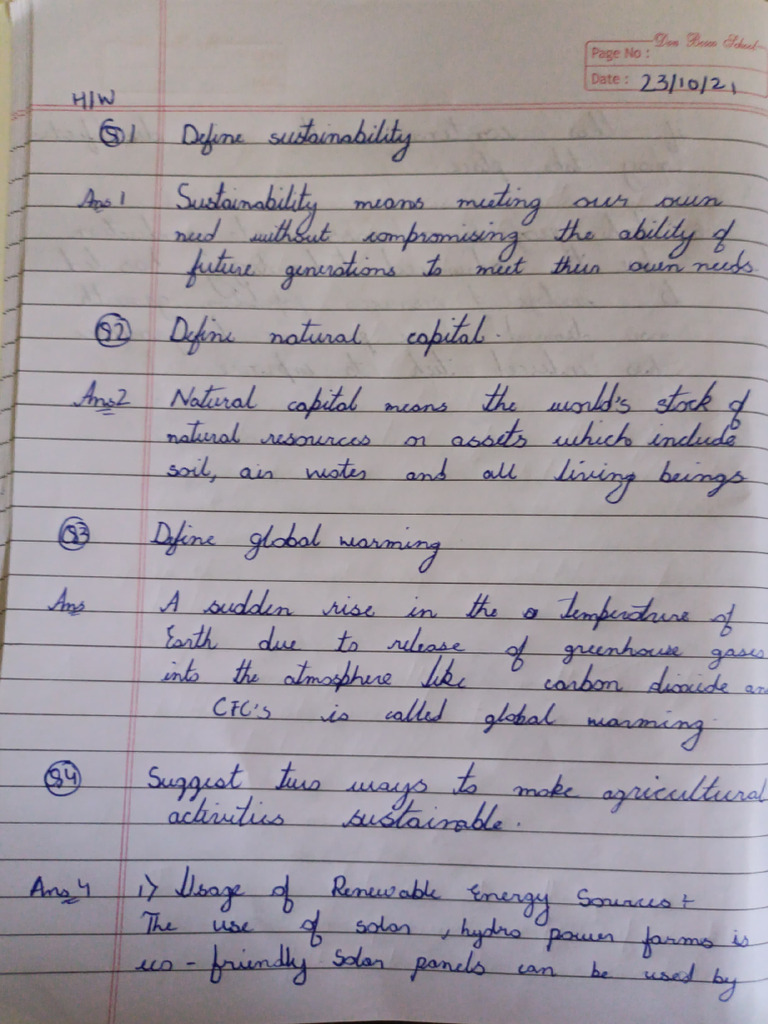 Don Bosco School
Page No :
Date : 23/10/21
H/W
Q1 Define sustainability
Ans 1 Sustainability means meeting our own
need without compromising the ability of
future generations to meet their own needs
Q2 Define natural capital.
Ans 2 Natural capital means the world's stock of
natural resources or assets which include
soil, air water and all living beings
Q3 Define global warming
Ans A sudden rise in the temperature of
Earth due to release of greenhouse gases
into the atmosphere like carbon dioxide an
CFC's is called global warming
Q4 Suggest two ways to make agricultural
activities sustainable.
Ans 4 1) Usage of Renewable Energy Sources :-
The use of solar, hydro power farms is
eco-friendly Solar panels can be used by